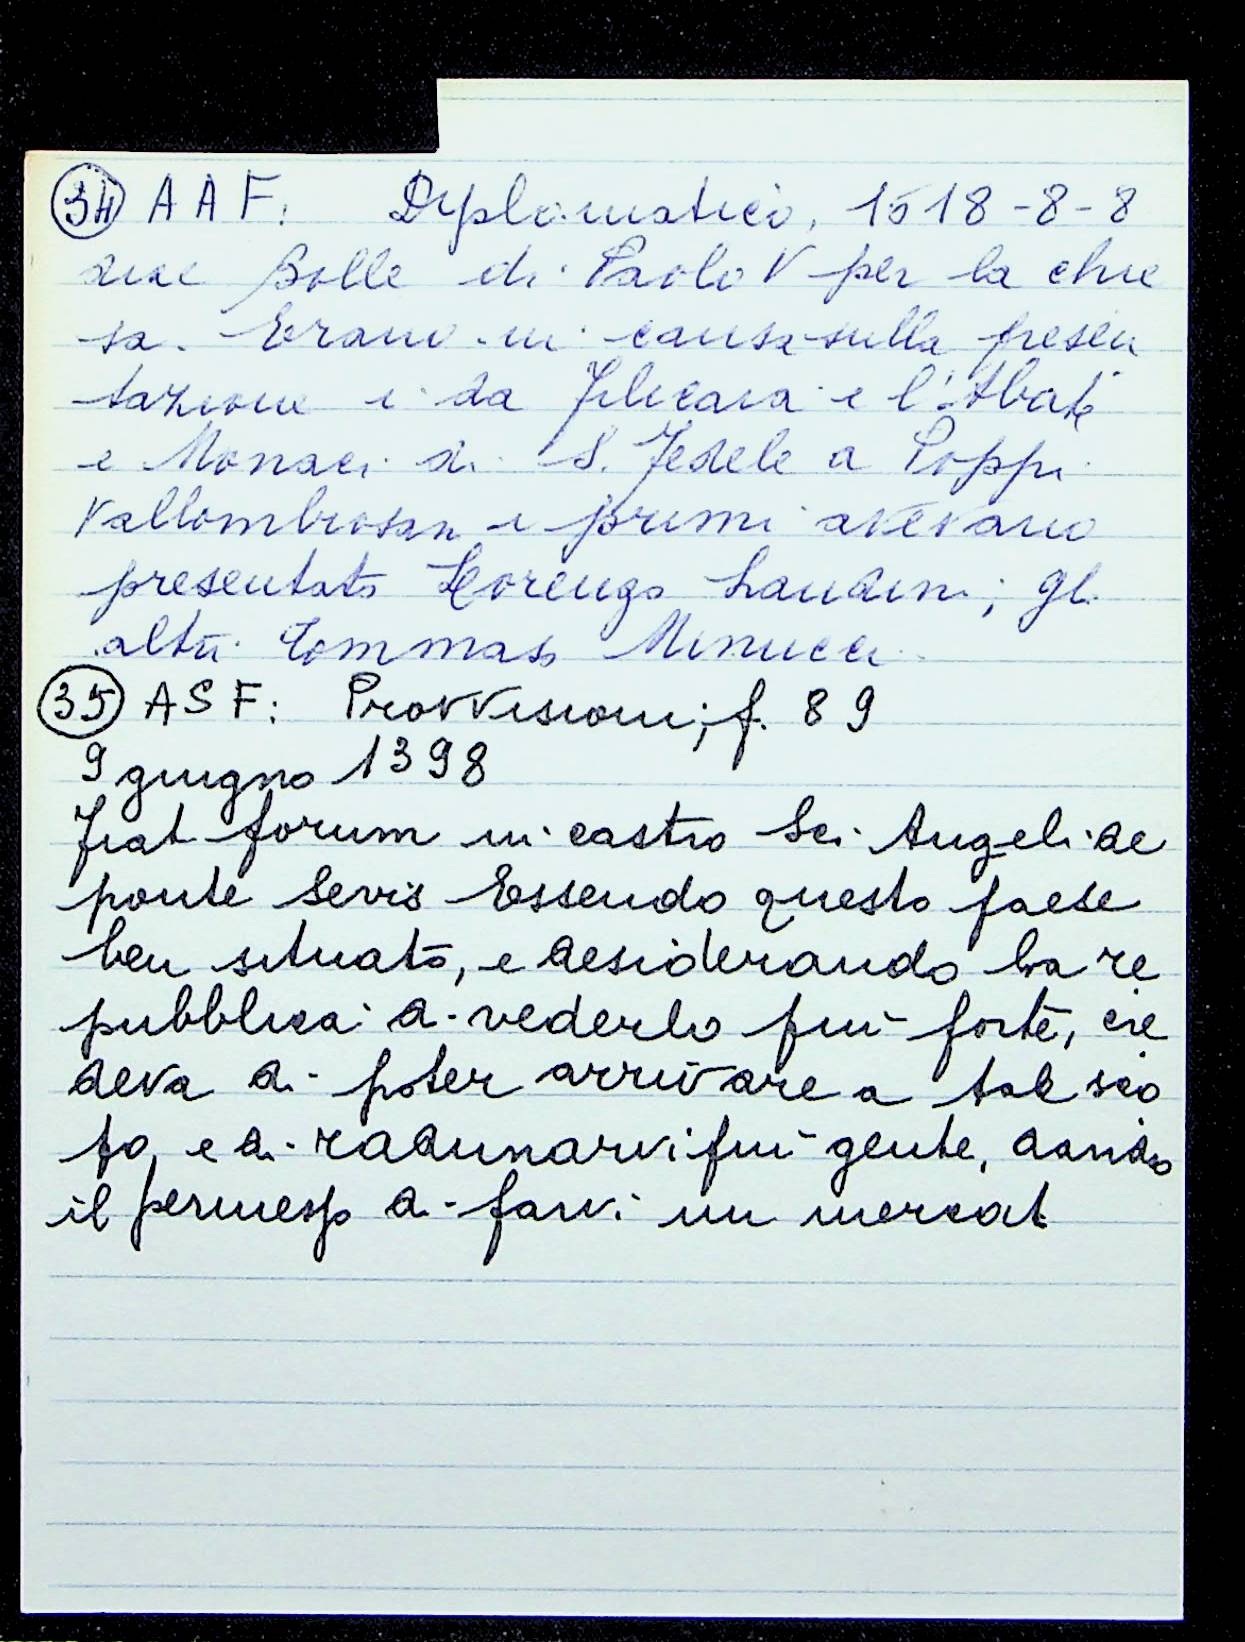 34 A A F: Diplomatico, 1518-8-8
due Bolle di Paolo V per la chie
sa. Erano in causa sulla presen
tazione i da Filicaia e l'Abate
e Monaci di S. Fedele a Poppi
Vallombrosan i primi avevano
presentato Lorenzo Landini; gli
altri Tommaso Minucci.
35 ASF: Provvisioni; f. 89
9 giugno 1398
Fiat forum in castro Sci Angeli de
ponte Sevis Essendo questo paese
ben situato, e desiderando la re
pubblica di vederlo più forte, cre
deva di poter arrivare a tale sco
po, e di radunarvi più gente, dando
il permesso di farvi un mercat